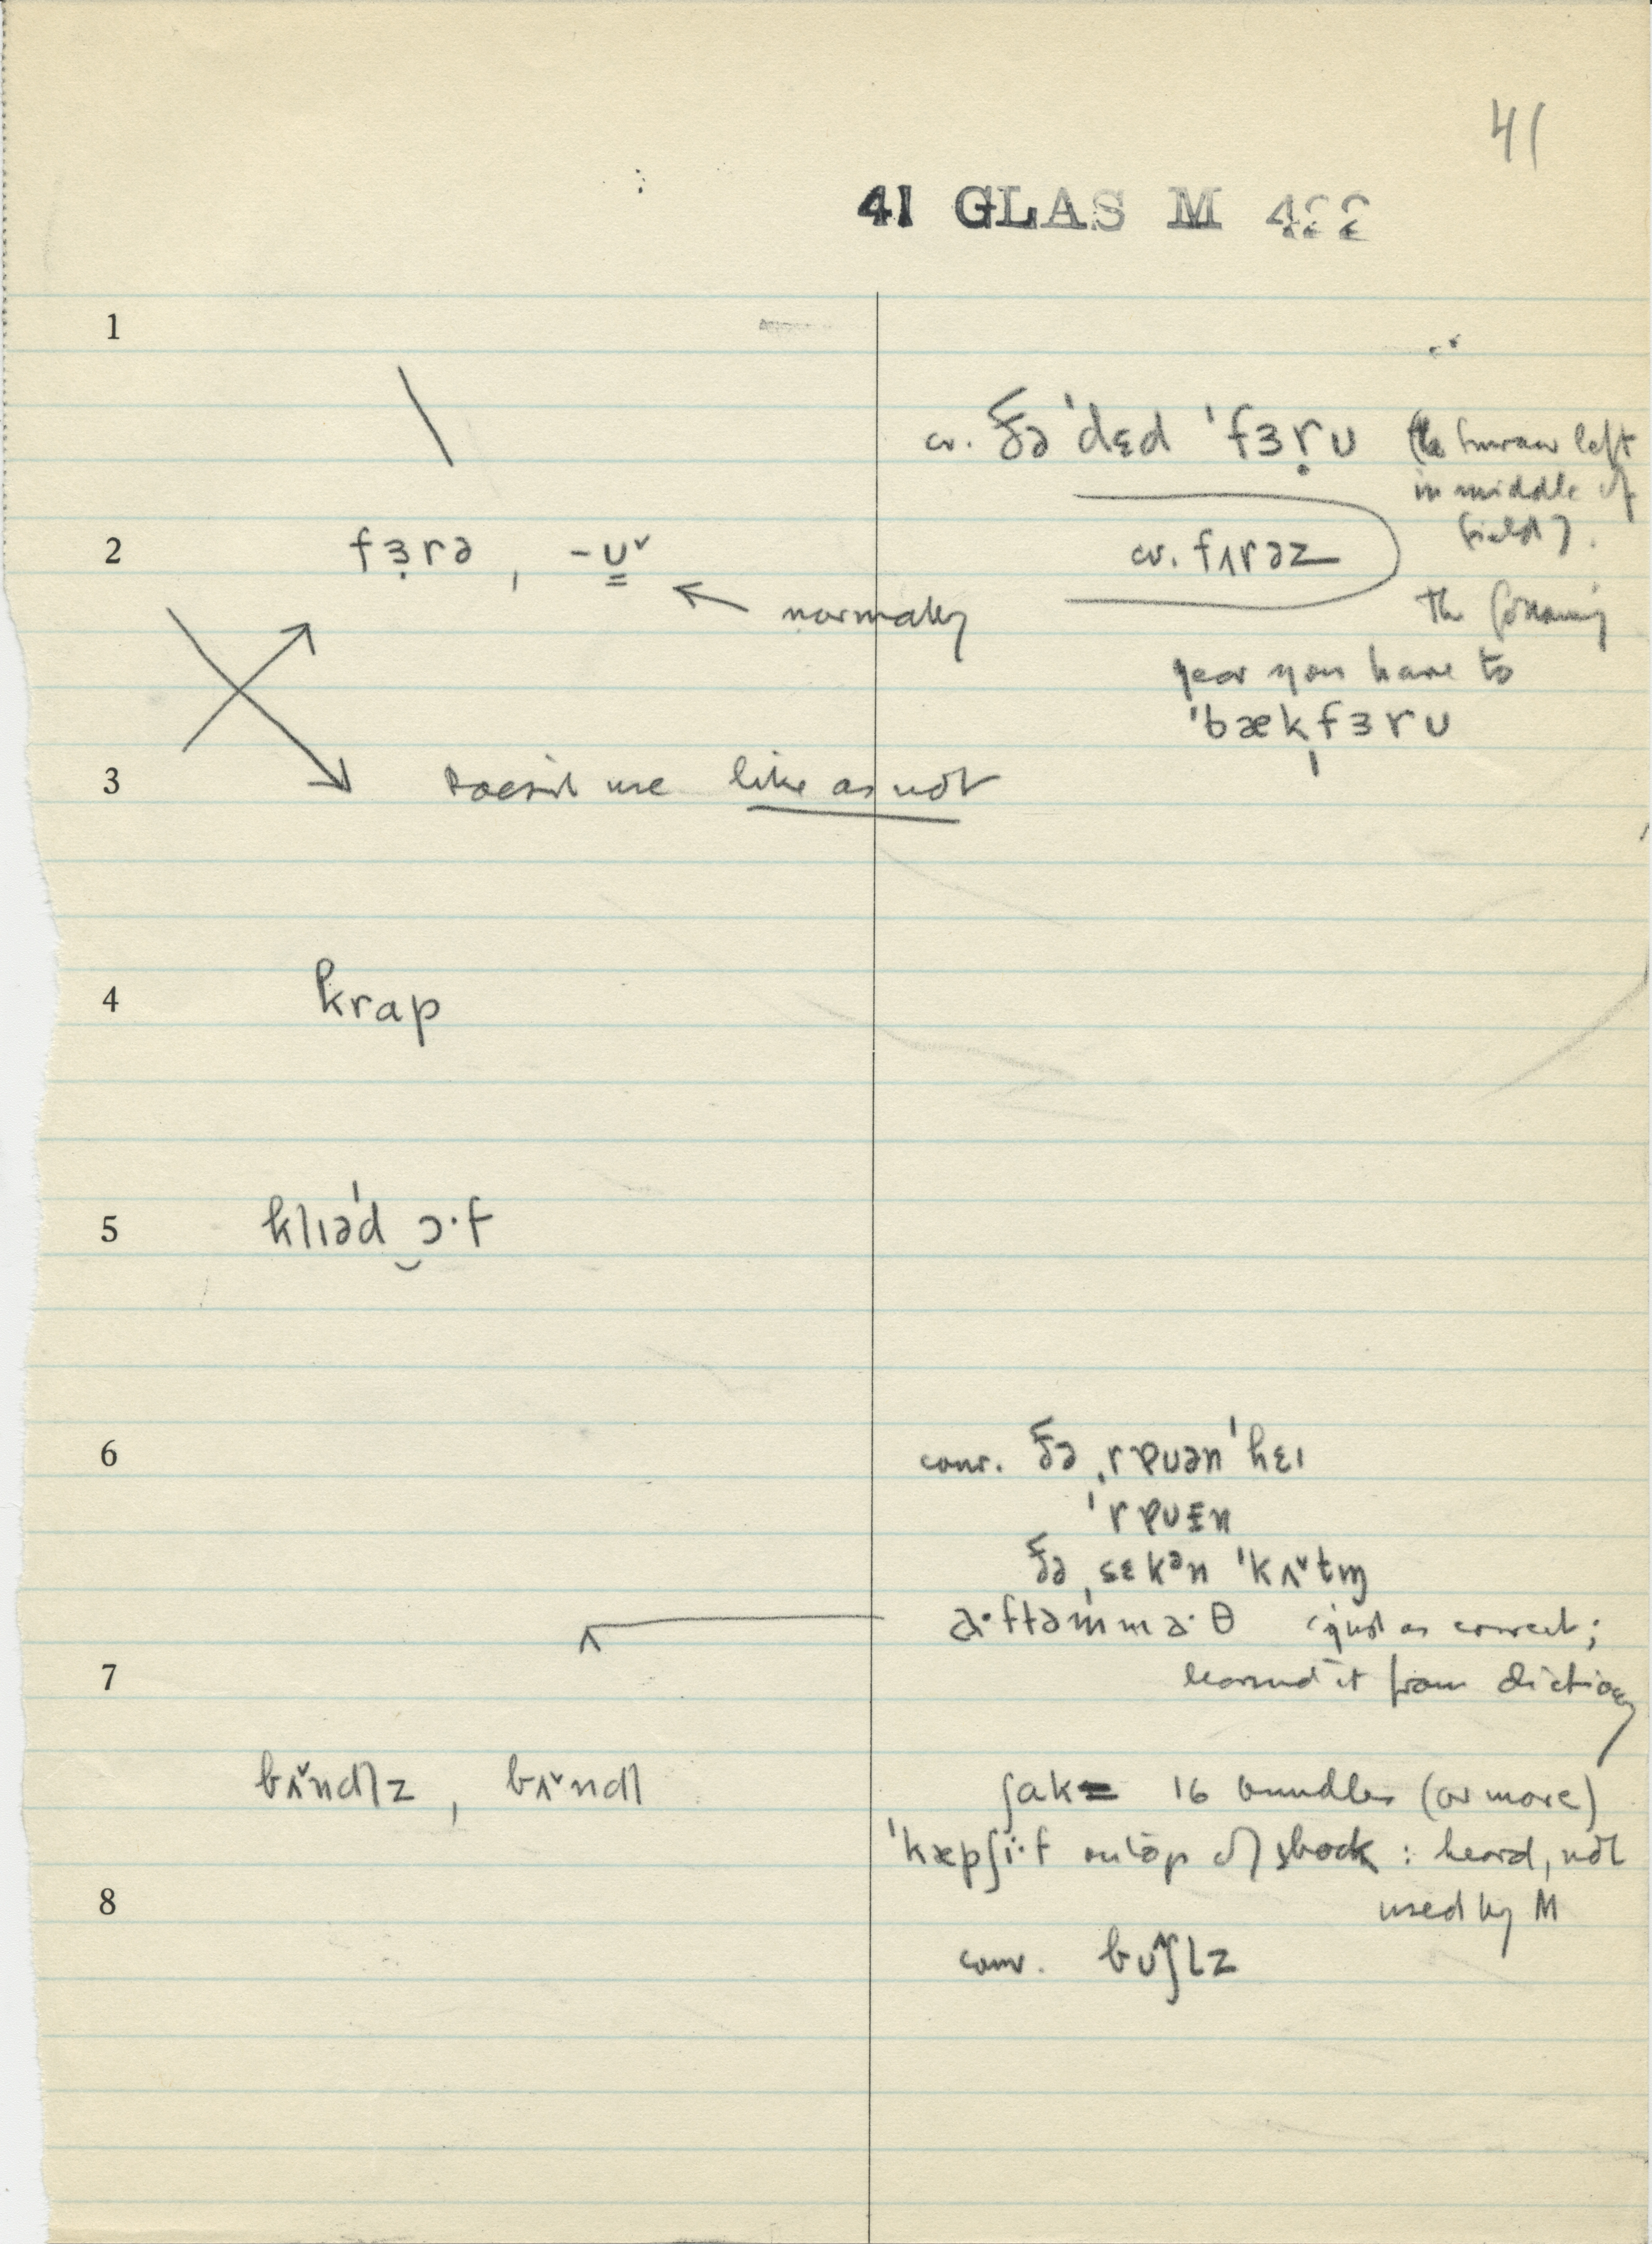 41
41 GLAS M 422
1
cv. ðə ˈdɛd ˈfɜṛʊ (the furrow left
in middle of
field).
2 fɜ̣rə, -ʊ̳˅ cv. fʌrəz
← normally
the following
year you have to
ˈbækˌfɜrʊ
3 doesn't use like as not
4 krap
5 klɪəˈd‿ɔ·f
6 conv. ðə ˌrɐʊənˈhɛɪ
ˈrɐʊɛn
ðə ˌsɛkᵊn ˈkʌ˅tɪŋ
a·ftəmma·θ (just as correct;
7 learned it from dictionary
bʌ˅ndlz, bʌ˅ndl ʃak = 16 bundles (or more)
ˈkæpʃi·f on top of shock : heard, not
8 used by M
conv. bʊ^ʃlz